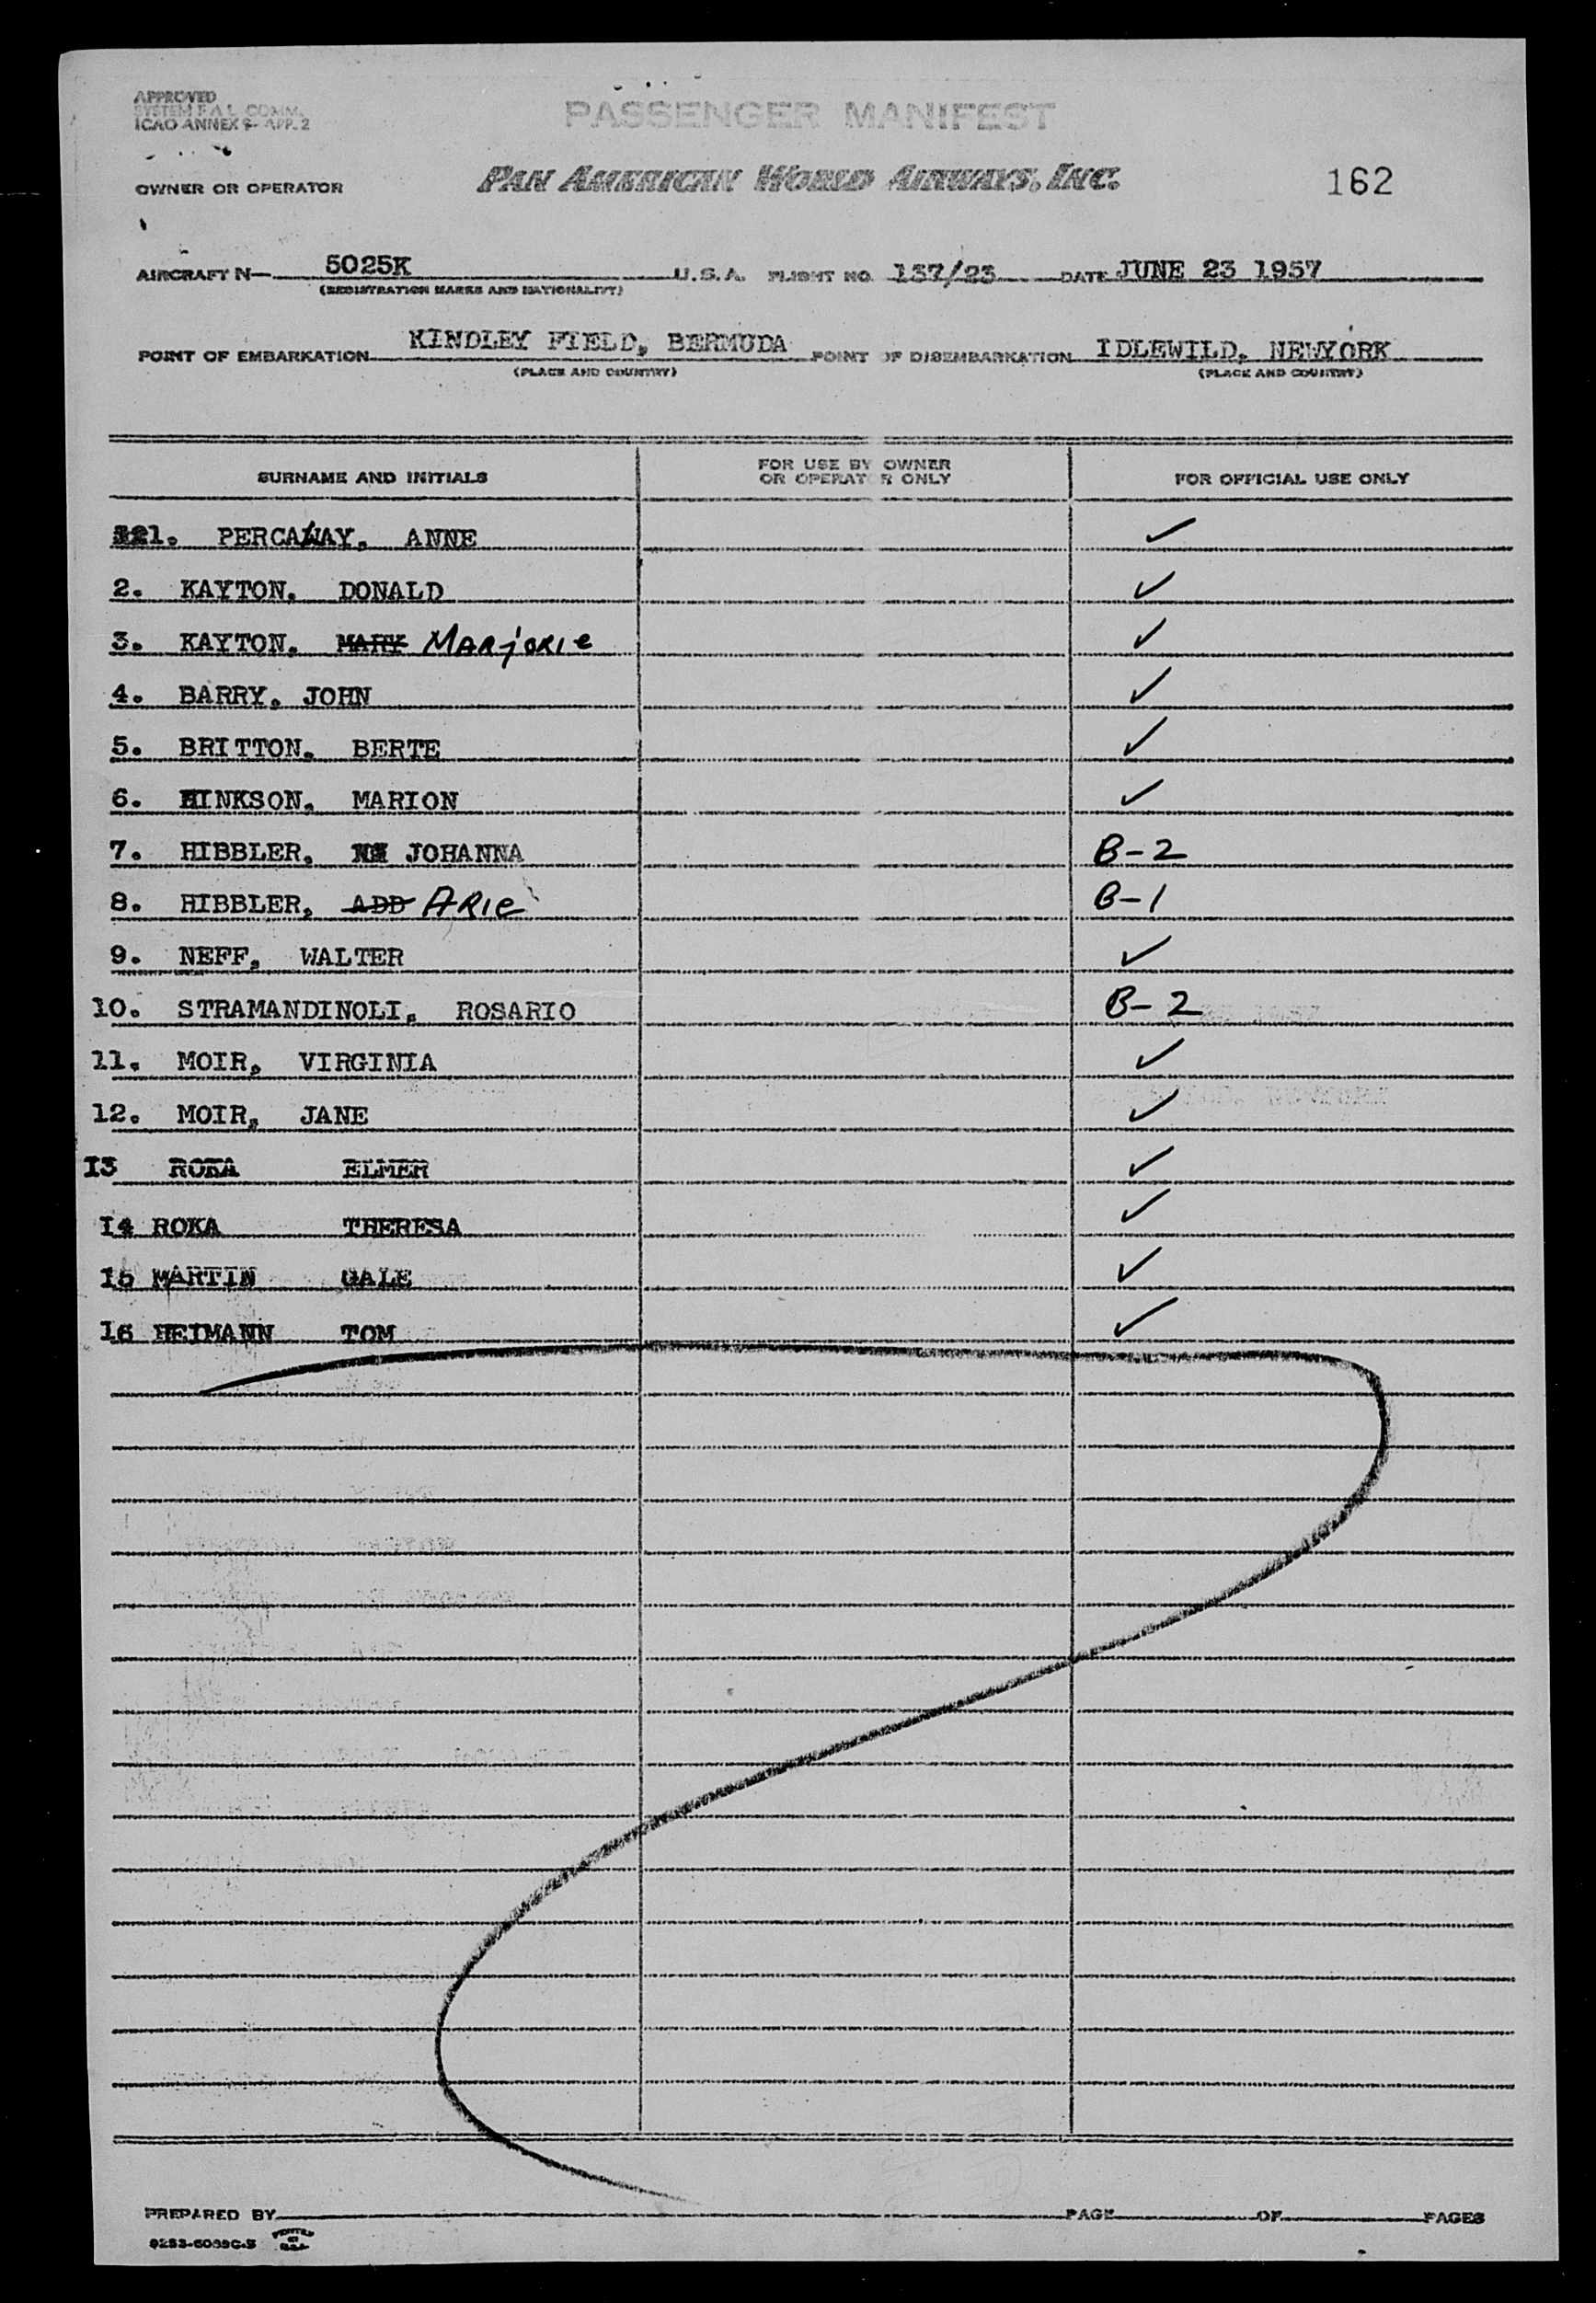 APPROVED
SYSTEM F.A.L. COMM.
ICAO ANNEX 9- APP. 2
PASSENGER MANIFEST
OWNER OR OPERATOR PAN AMERICAN WORLD AIRWAYS, INC. 162
AIRCRAFT N— 5025K U.S.A. FLIGHT NO. 137/23 DATE JUNE 23 1957
(REGISTRATION MARKS AND NATIONALITY)
POINT OF EMBARKATION KINDLEY FIELD, BERMUDA POINT OF DISEMBARKATION IDLEWILD, NEWYORK
(PLACE AND COUNTRY) (PLACE AND COUNTRY)
SURNAME AND INITIALS FOR USE BY OWNER OR OPERATOR ONLY FOR OFFICIAL USE ONLY
1. PERCAWAY, ANNE ✓
2. KAYTON, DONALD ✓
3. KAYTON, MARY Marjorie ✓
4. BARRY, JOHN ✓
5. BRITTON, BERTE ✓
6. HINKSON, MARION ✓
7. HIBBLER, JOHANNA B-2
8. HIBBLER, ADD Arie B-1
9. NEFF, WALTER ✓
10. STRAMANDINOLI, ROSARIO B-2
11. MOIR, VIRGINIA ✓
12. MOIR, JANE ✓
13 ROKA ELMER ✓
14 ROKA THERESA ✓
15 MARTIN GALE ✓
16 HEIMANN TOM ✓
PREPARED BY PAGE OF PAGES
PRINTED IN U.S.A.